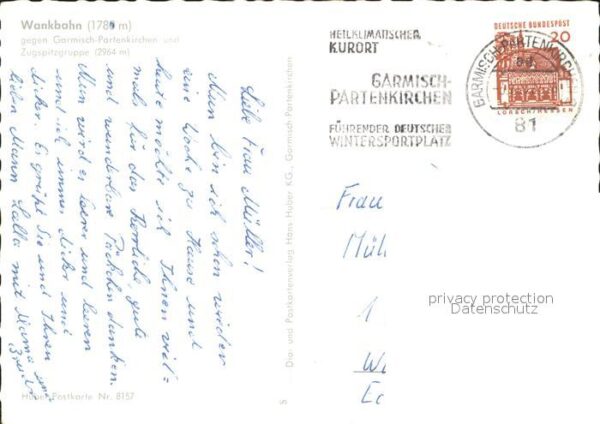 Wankbahn (1780 m)
gegen Garmisch-Partenkirchen und
Zugspitzgruppe (2964 m)
Liebe Frau Müller!
Nun bin ich schon wieder
eine Woche zu Hause und
heute möchte ich Ihnen viel=
mals für das herrliche, gute
und wunderbare Päckchen danken.
Nun wird es leerer und leerer
und ich immer dicker und
dicker. Es grüßt Sie und Ihren
lieben Mann Lalla mit Mama und
Huber Postkarte Nr. 8157
S
Dia- und Postkartenverlag Hans Huber KG., Garmisch-Partenkirchen
HEILKLIMATISCHER
KURORT
GARMISCH-
PARTENKIRCHEN
FÜHRENDER DEUTSCHER
WINTERSPORTPLATZ
GARMISCH-PARTENKIRCHEN
81
DEUTSCHE BUNDESPOST
20
LORSCH/HESSEN
Frau
Mül
1
privacy protection
Datenschutz